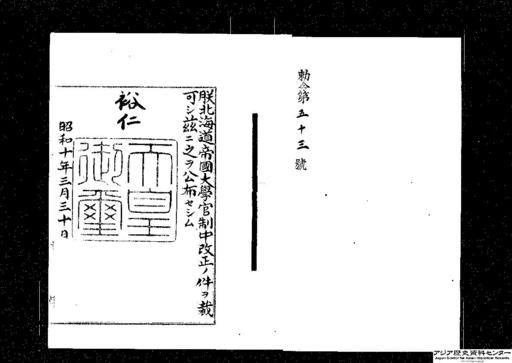 勅令第五十三號
朕北海道帝國大學官制中改正ノ件ヲ裁
可シ茲ニ之ヲ公布セシム
裕仁
天皇
御璽
昭和十年三月三十日
アジア歴史資料センター
Japan Center for Asian Historical Records